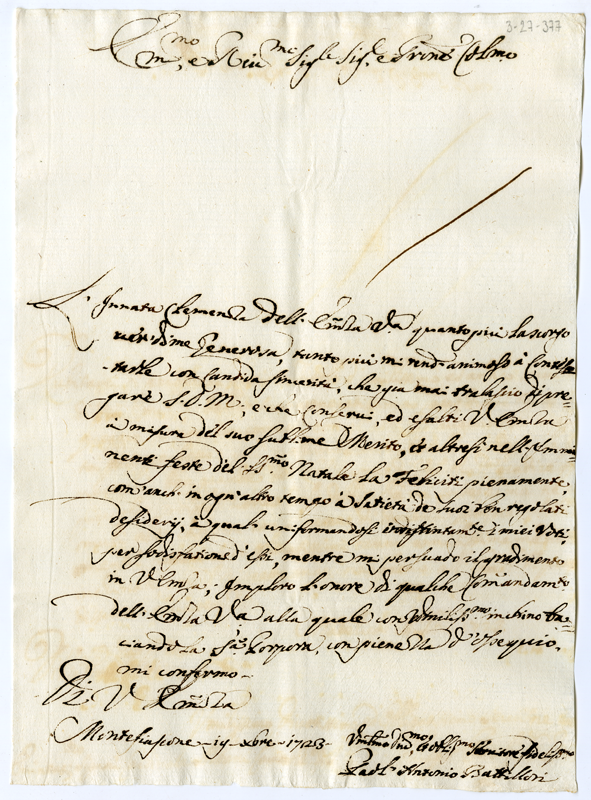 3-27-377
Em.mo, e R.mo Sig.re Sig.r e Prine Colmo
L'Innata Clemenza dell'Em.za V.ra quanto più la scorgo
verso di me Generosa, tanto più mi rende animoso à Contes-
tarle con candida sincerità, che già mai tralascio di pre-
gare S. D. M., e che conservi, ed esalti V. Em.za
à misura del suo sublime Merito, et altresì nell'Immi-
nenti feste del SS.mo Natale La Feliciti pienamente,
com'anch'in ogn'altro tempo à satietà de suoi ben regolati
desiderij, à quali uniformandosi indistintam.te i miei Voti,
per sodisfatione d'essi, mentre mi persuado il gradimento
in V. Em.za; Imploro l'onore di qualche Comandam.to
dell'Em.za V.ra alla quale con Umiliss.mo inchino ba-
ciando la S.a Porpora, con pienezza d'ossequio,
mi confermo-
Di V. Em.za
Montefiascone 19 xbre 1723-
Umilmo Devmo, et Obblimo Servitore fidelissmo
Paol'Antonio Battillori